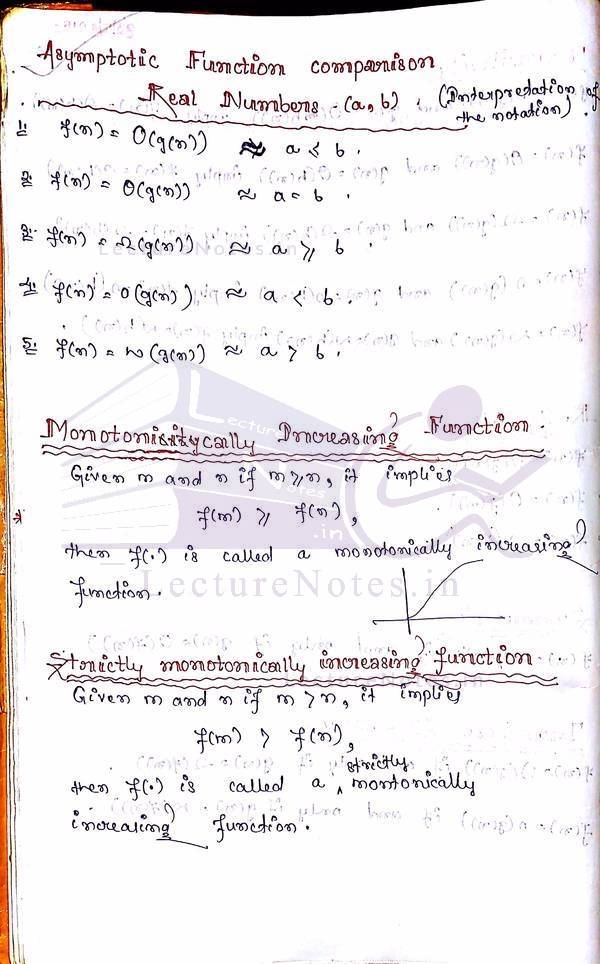 Asymptotic Function comparison
Real Numbers - (a, b) . (Interpretation of the notation).
1. f(n) = O(g(n)) ≈ a ≤ b .
2. f(n) = Θ(g(n)) ≈ a = b .
3. f(n) = Ω(g(n)) ≈ a ≥ b .
4. f(n) = o(g(n)) ≈ a < b .
5. f(n) = ω(g(n)) ≈ a > b .
Monotonicitycally Increasing Function .
Given m and n if m ≥ n, it implies
f(m) ≥ f(n),
then f(.) is called a monotonically increasing
function .
Strictly monotonically increasing function .
Given m and n if m > n, it implies
f(m) > f(n),
then f(.) is called a strictly montonically
increasing function .
LectureNotes.in